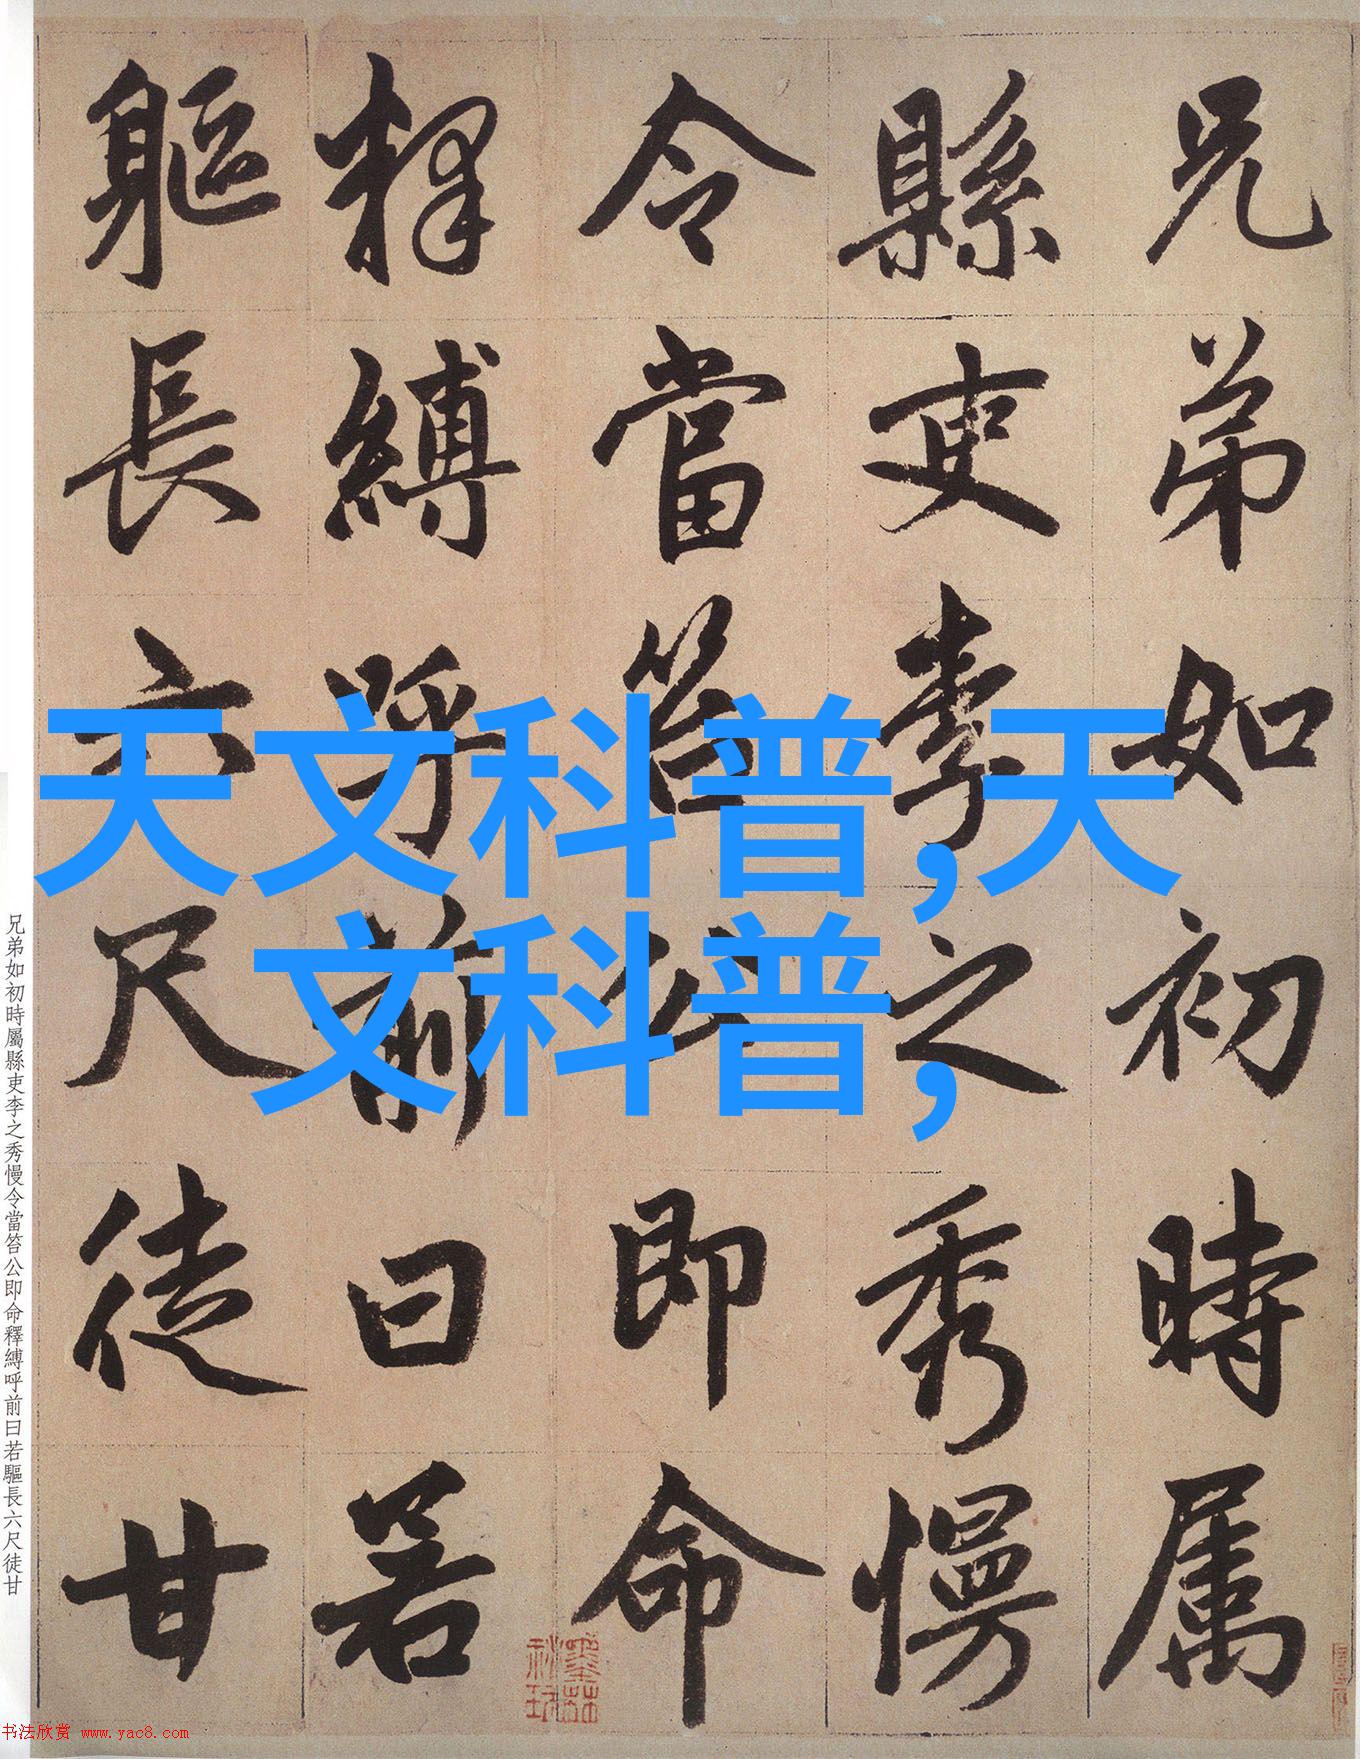 兄弟如初時属
縣吏李之秀慢
令當笞公即命
釋縛呼前曰若
軀長六尺徒甘
天文科普,天
文科普,
兄弟如初時屬縣吏李之秀慢令當笞公即命釋縛呼前曰若驅長六尺徒甘
书法欣赏 www.yac8.com